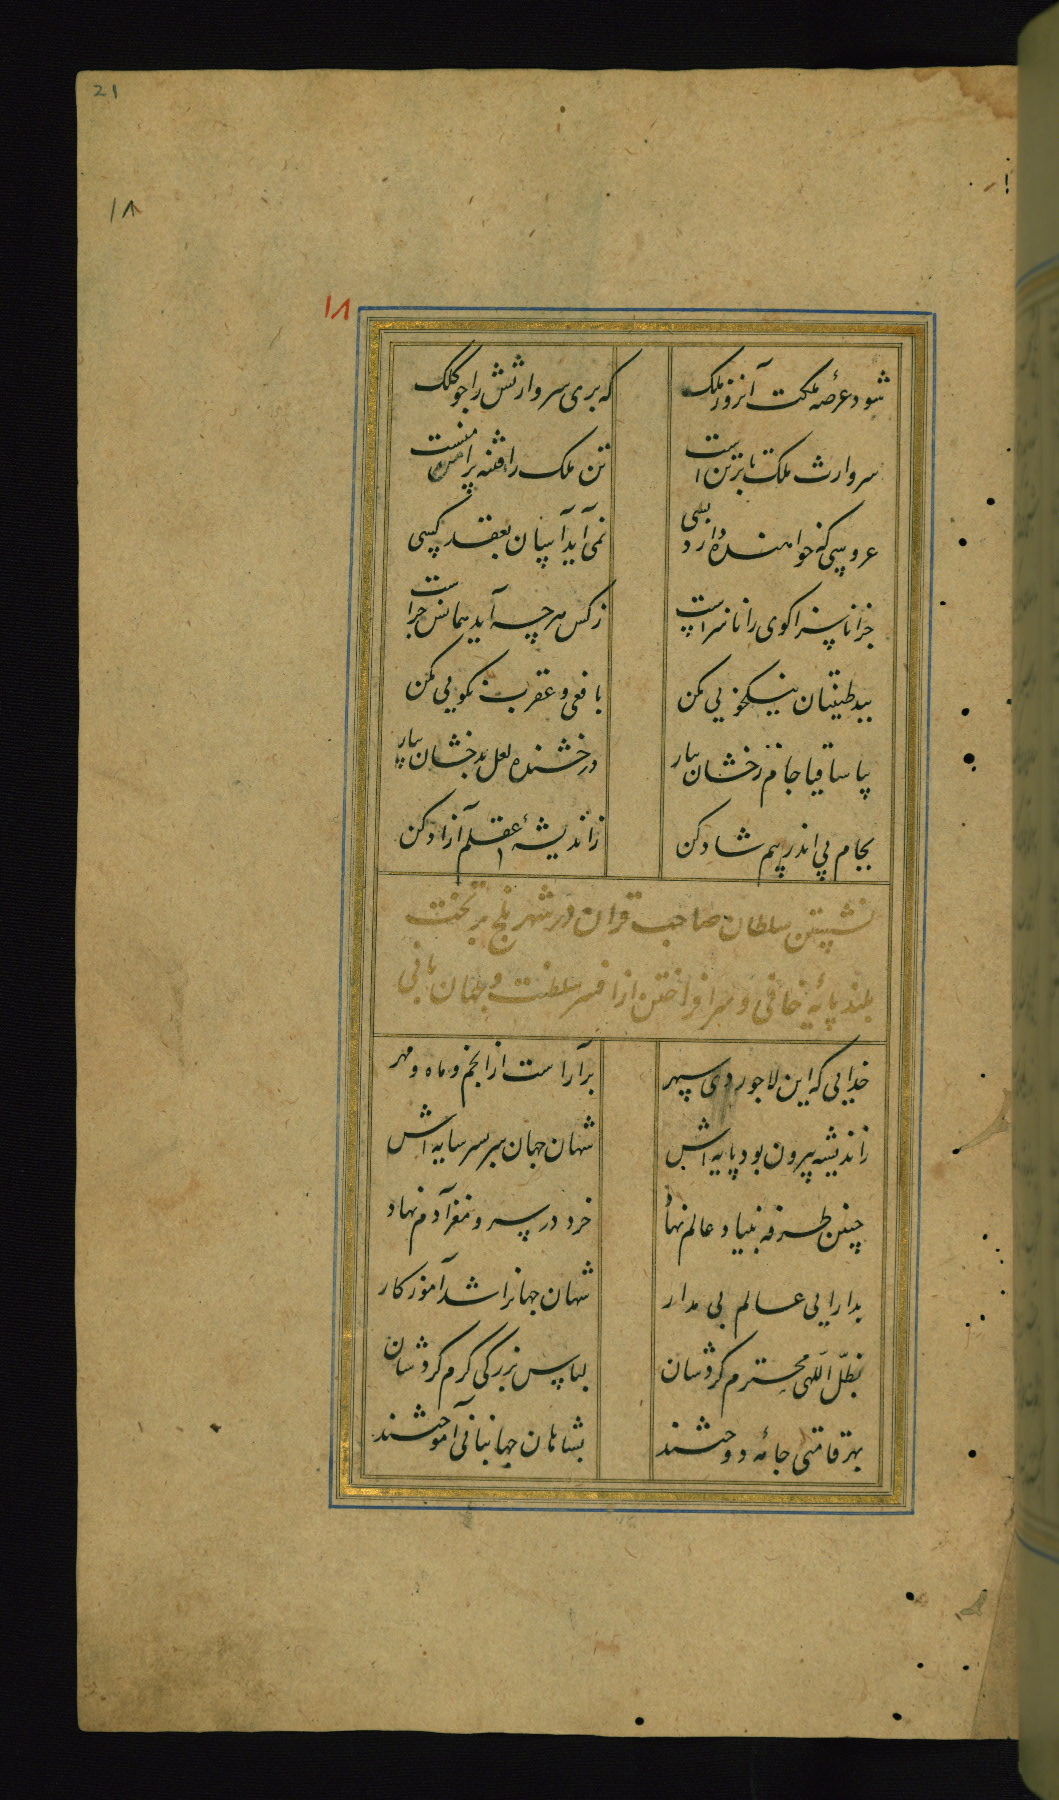 21
١٨
١٨
شود عرصهٔ مملکت آنروز ملک که بری سر وارثش را چو کلک
سر وارث ملک تا بر تن است تن ملک را فتنه پیرامنست
عروسی که خواهنده دارد بسی نمی‌آید آسان بعقد کسی
جزا ناسزا کوی را ناسزاست ز کس هرچه آید همانش جزاست
ببد طینتان نیکخویی مکن بافعی و عقرب نکویی مکن
بیا ساقیا جام رخشان بیار درخشنده لعل بدخشان بیار
بجام پی اندر پیم شاد کن ز اندیشهٔ عقلم آزاد کن
نشستن سلطان صاحب قران در شهر بلخ بر تخت
بلند پایهٔ خاقی و سر افراختن از افسر سلطنت و جهان بانی
خدایی که این لاجوردی سپهر برآراست از انجم و ماه و مهر
ز اندیشه بیرون بود پایه‌اش شهان جهان سر بسر سایه‌اش
چنین طرفه بنیاد عالم نهاد خرد در سر و مغز آدم نهاد
بدارایی عالم بی مدار شهان جهانرا شد آموزکار
بظلّ اللهی محترم کردشان لباس بزرکی کرم کردشان
بهر قامتی جامهٔ دوختند بشاهان جهانبانی آموختند